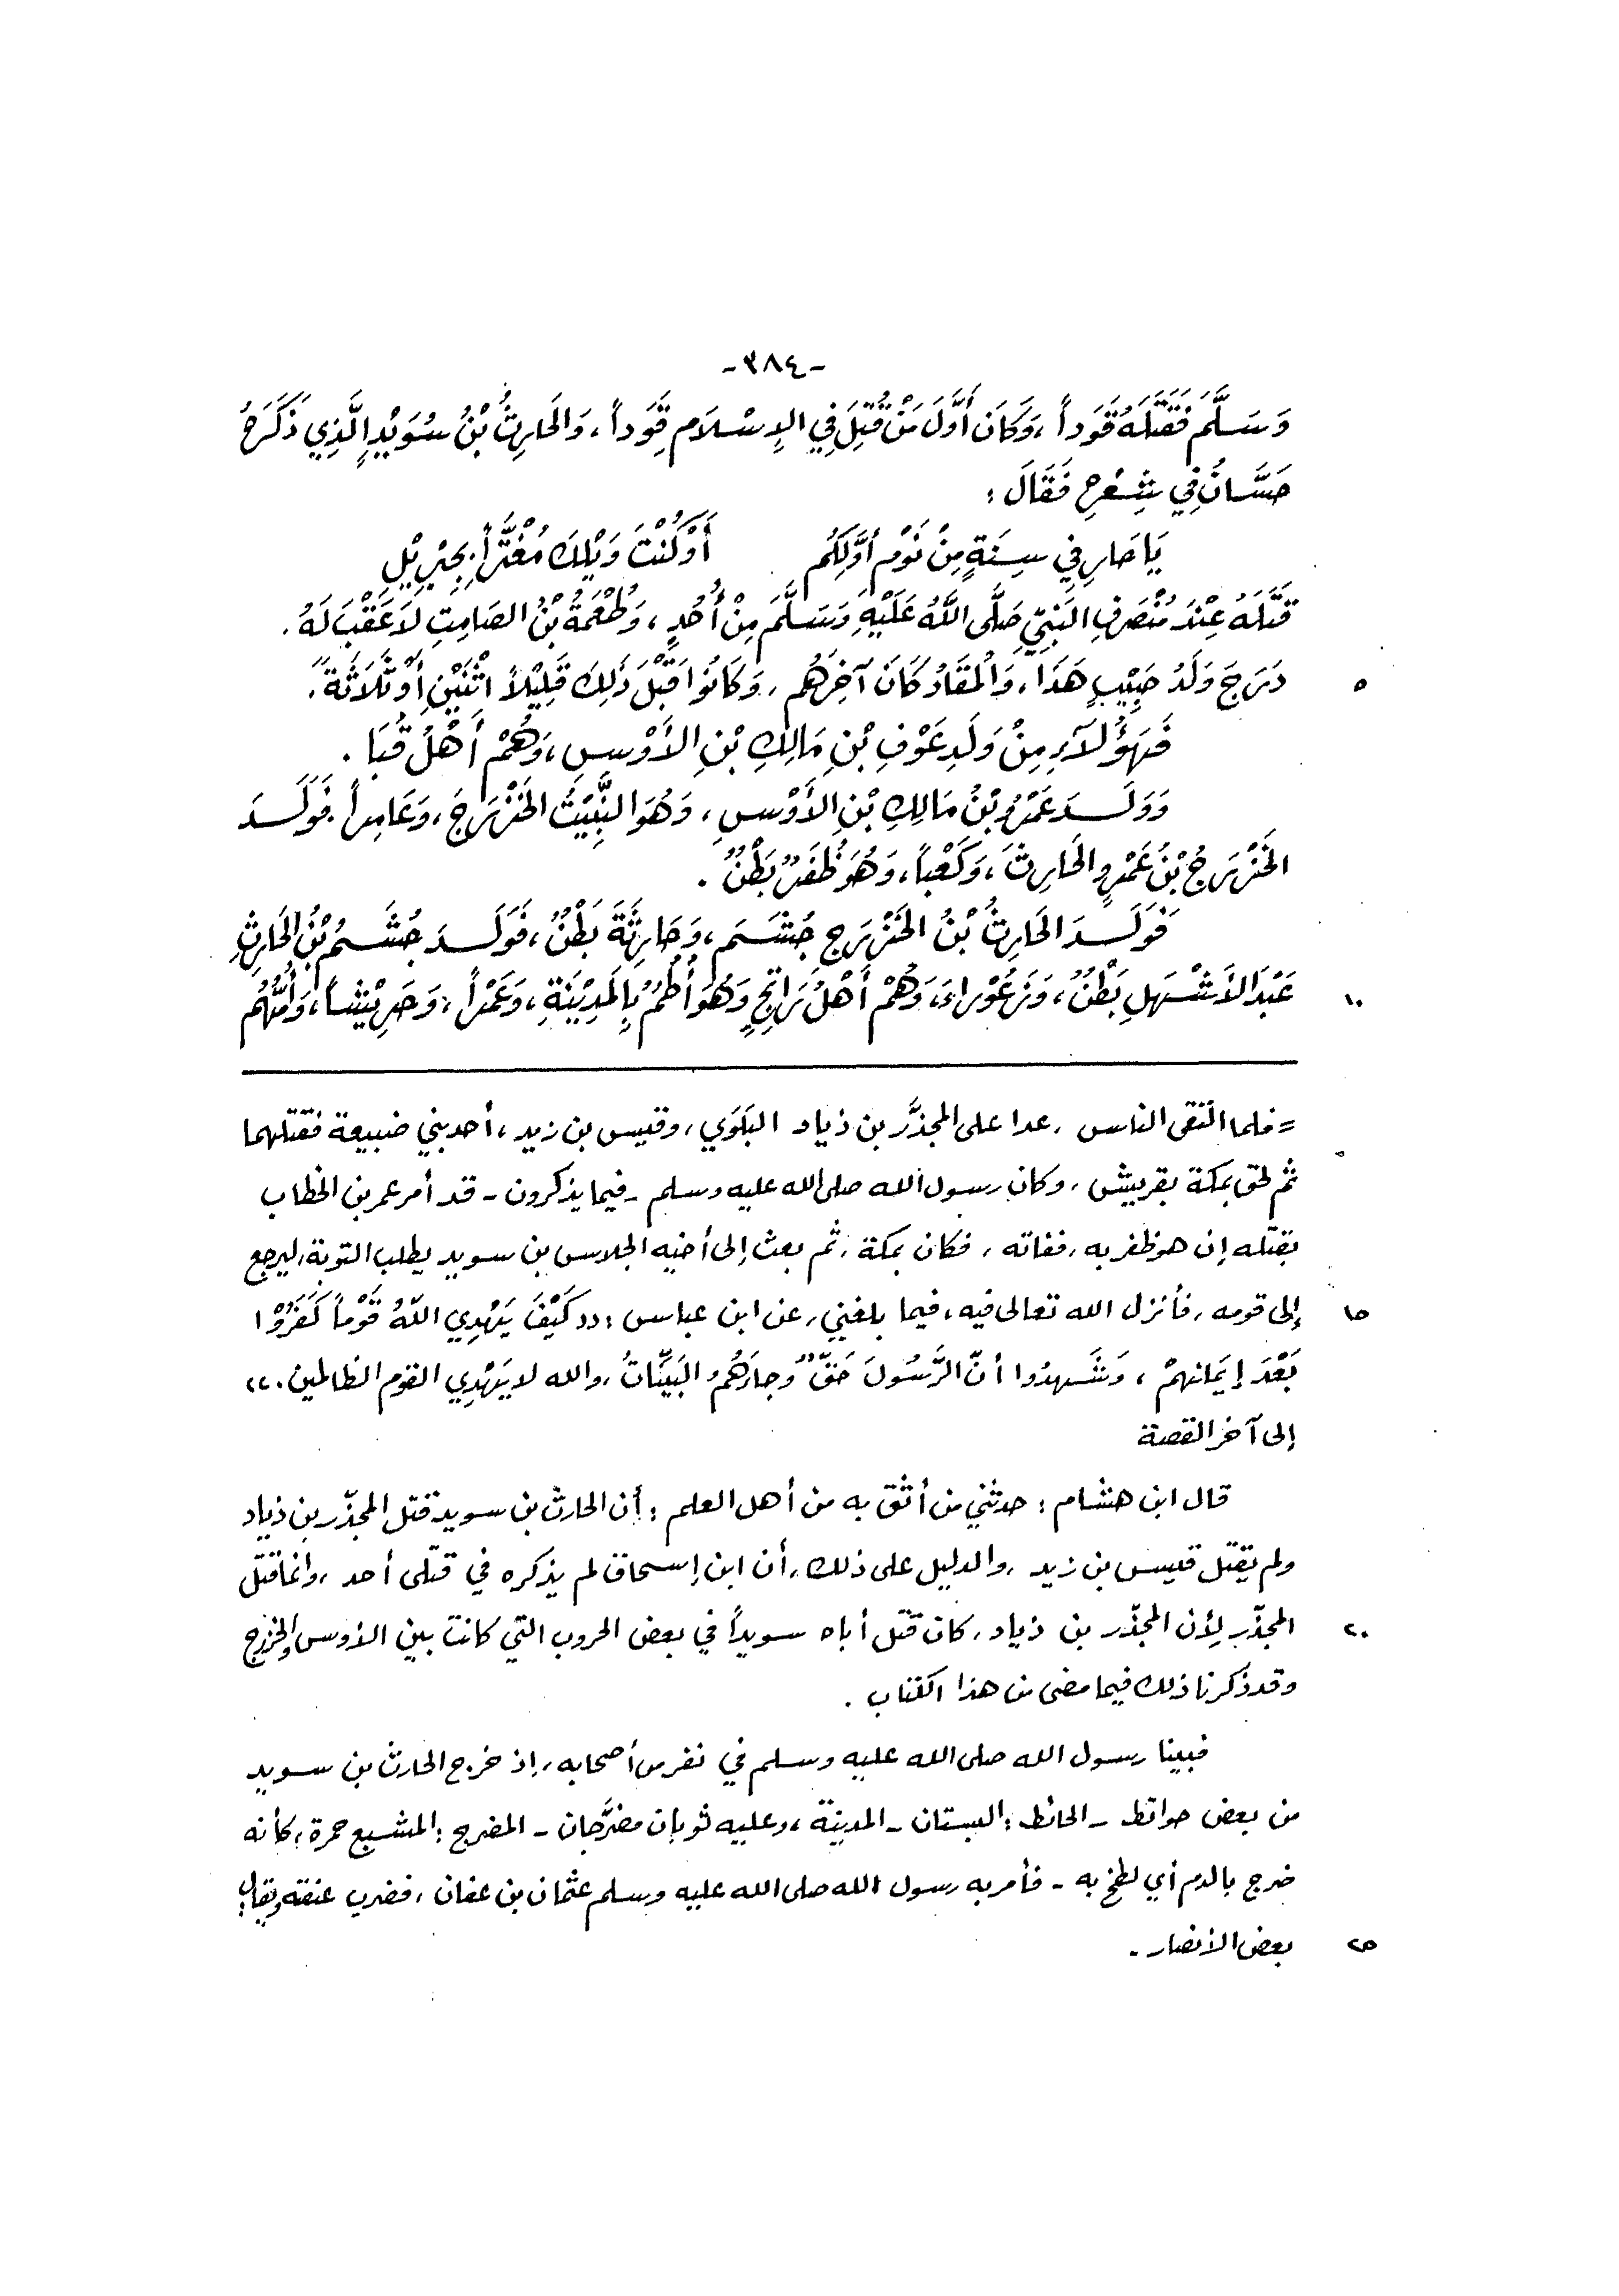 -٣٨٤-
وَسَلَّمَ فَقَتَلَهُ قَوَداً، وَكَانَ أَوَّلَ مَنْ قُتِلَ فِي الإِسْلَامِ قَوَداً، وَالحَارِثُ بْنُ سُوَيْدٍ الَّذِي ذَكَرَهُ
حَسَّانُ فِي شِعْرِهِ فَقَالَ:
يَا حَارِ فِي سِنَةٍ مِنْ نَوْمِ أَوَّلِكُم أَوْ كُنْتَ وَيْلِكَ مُغْتَرّاً بِجِبْرِيْلِ
قَتَلَهُ عِنْدَ مُنْصَرَفِ النَّبِيِّ صَلَّى اللَّهُ عَلَيْهِ وَسَلَّمَ مِنْ أُحُدٍ، وَطُعْمَةُ بْنُ الصَامِتِ لاَ عَقْبَ لَهُ.
٥ دَرَجَ وَلَدُ حَبِيْبٍ هَذَا، وَالمَقَادُ كَانَ آخِرَهُم، وَكَانُوا قَبْلَ ذَلِكَ قَلِيْلاً اثْنَيْنِ أَوْ ثَلَاثَةً.
فَهَؤُلاَءِ مِنْ وَلَدِ عَوْفِ بْنِ مَالِكِ بْنِ الأَوْسِ، وَهُمْ أَهْلُ قُبَا.
وَوَلَدَ عَمْرُو بْنُ مَالِكِ بْنِ الأَوْسِ، وَهُوَ النَّبِيْتُ الخَزْرَجَ، وَعَامِراً. فَوَلَدَ
الخَزْرَجُ بْنُ عَمْرٍو الحَارِثَ، وَكَعْباً، وَهُوَ ظُفَرٌ بَطْنٌ.
فَوَلَدَ الحَارِثُ بْنُ الخَزْرَجِ جُشَمَ، وَحَارِثَةَ بَطْنٌ، فَوَلَدَ جُشَمُ بْنُ الحَارِثِ
١٠ عَبْدَ الأَشْهَلِ بَطْنٌ، وَزَعُوْرَاءَ، وَهُمْ أَهْلُ رَاتِجٍ وَهُوَ أُطُمٌ بِالمَدِيْنَةِ، وَعَمْراً، وَحَرِيْشاً، وَأُمُّهُم
= فلما التقى الناس، عدا على المجذَّر بن ذياد البَلَوي، وقيس بن زيد، أحد بني ضبيعة فقتلهما
ثم لحق بمكة بقريش، وكان رسول الله صلى الله عليه وسلم -فيما يذكرون- قد أمر عمر بن الخطاب
بقتله إن هو ظفر به، ففاته، فكان بمكة، ثم بعث إلى أخيه الجلاس بن سويد يطلب التوبة، ليرجع
١٥ إلى قومه، فأنزل الله تعالى فيه، فيما بلغني، عن ابن عباس: «كَيْفَ يَهْدِي اللّهُ قَوْماً كَفَرُوْا
بَعْدَ إيَمانهمْ، وَشَهدُوا أنّ الرَّسُولَ حَقٌّ وَجاءَهُمُ البَيِّنَاتُ، والله لا يَهْدِي القوم الظالمين.»
إلى آخر القصة
قال ابن هشام: حدثني من أثق به من أهل العلم: أن الحارث بن سويد قتل المجذّر بن ذياد
ولم يقتل قيس بن زيد، والدليل على ذلك، أن ابن إسحاق لم يذكره في قتلى أحد، وانما قتل
٢٠ المجذّر لِأن المجذّر بن ذياد، كان قتل أباه سويداً في بعض الحروب التي كانت بين الأوس والخزرج
وقد ذكرنا ذلك فيما مضى من هذا الكتاب.
فبينا رسول الله صلى الله عليه وسلم في نفر من أصحابه، إذ خرج الحارث بن سويد
من بعض حوائط -الحائط: البستان- المدينة، وعليه ثوبان مضرَّجان- المضرج: المشبع حمرة، كأنه
ضرج بالدم أي لطخ به- فأمر به رسول الله صلى الله عليه وسلم عثمان بن عفان، فضرب عنقه ويقال:
٢٥ بعض الأنصار.